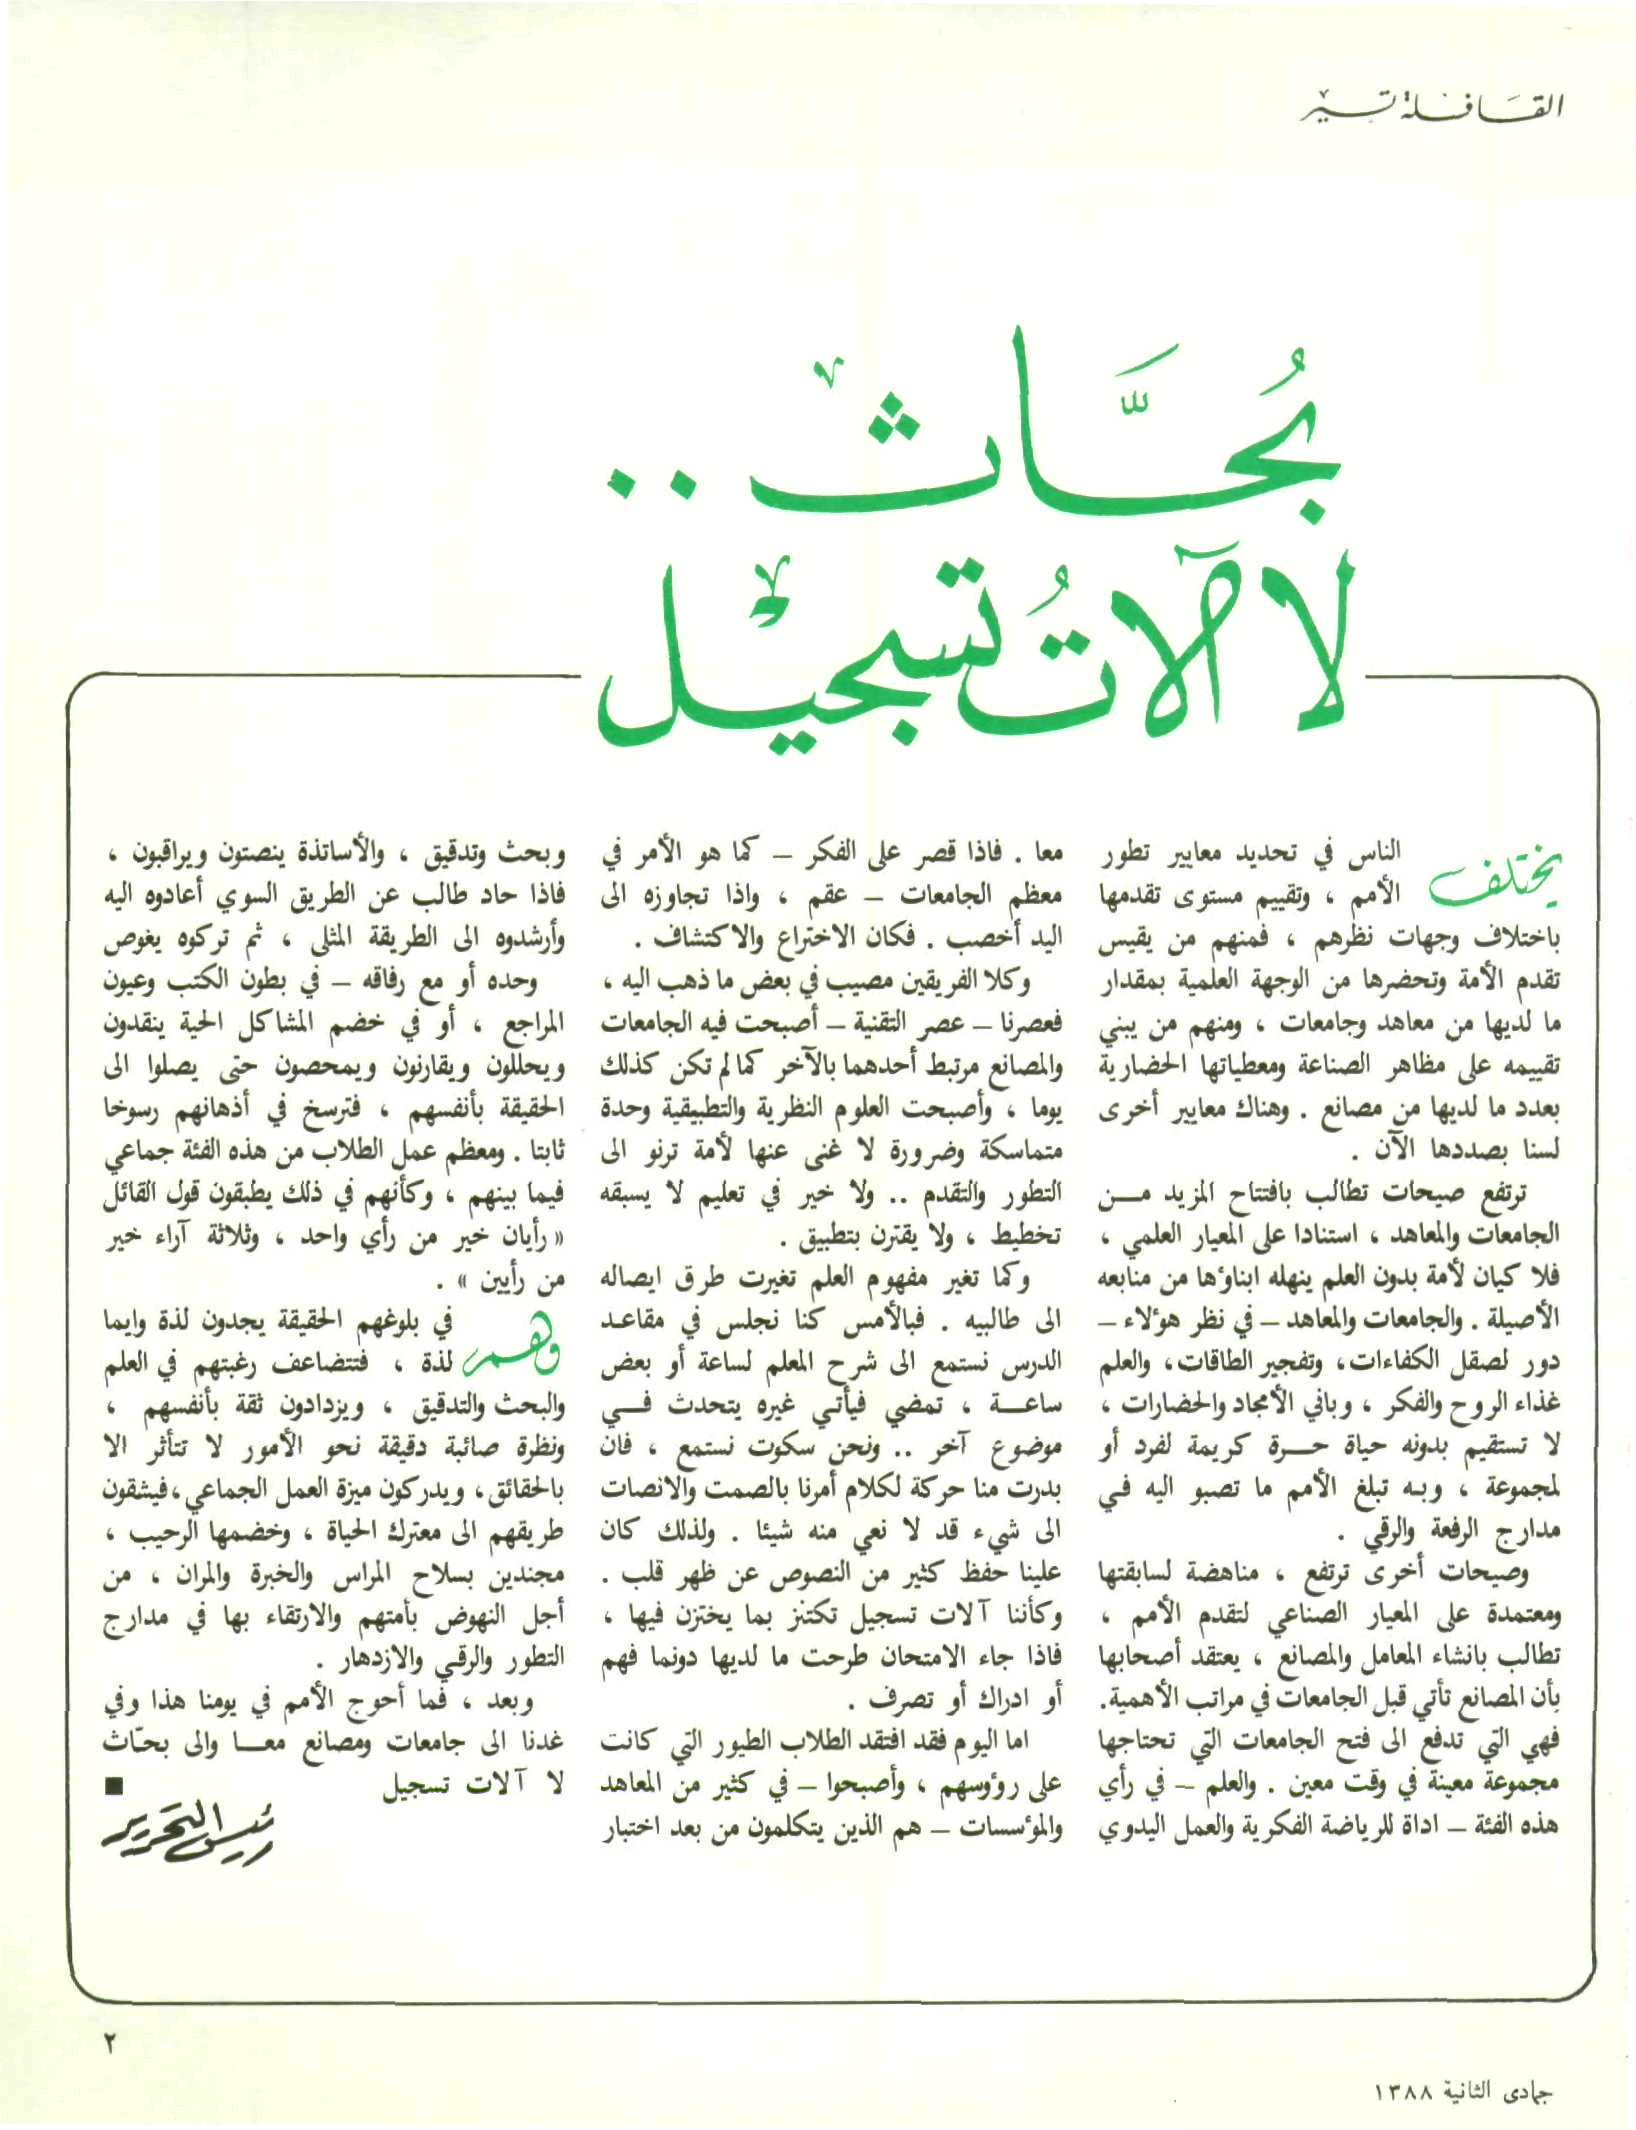 القافلة تسير
بُحَّاث ..
لا آلاتُ تسجيل
يختلف الناس في تحديد معايير تطور
الأمم ، وتقييم مستوى تقدمها
باختلاف وجهات نظرهم ، فمنهم من يقيس
تقدم الأمة وتحضرها من الوجهة العلمية بمقدار
ما لديها من معاهد وجامعات ، ومنهم من يبني
تقييمه على مظاهر الصناعة ومعطياتها الحضارية
بعدد ما لديها من مصانع . وهناك معايير أخرى
لسنا بصددها الآن .
ترتفع صيحات تطالب بافتتاح المزيد مــن
الجامعات والمعاهد ، استنادا على المعيار العلمي ،
فلا كيان لأمة بدون العلم ينهله ابناؤها من منابعه
الأصيلة . والجامعات والمعاهد – في نظر هؤلاء –
دور لصقل الكفاءات ، وتفجير الطاقات ، والعلم
غذاء الروح والفكر ، وباني الأمجاد والحضارات ،
لا تستقيم بدونه حياة حــرة كريمة لفرد أو
لمجموعة ، وبه تبلغ الأمم ما تصبو اليه فـي
مدارج الرفعة والرقي .
وصيحات أخرى ترتفع ، مناهضة لسابقتها
ومعتمدة على المعيار الصناعي لتقدم الأمم ،
تطالب بانشاء المعامل والمصانع ، يعتقد أصحابها
بأن المصانع تأتي قبل الجامعات في مراتب الأهمية.
فهي التي تدفع الى فتح الجامعات التي تحتاجها
مجموعة معينة في وقت معين . والعلم – في رأي
هذه الفئة – اداة للرياضة الفكرية والعمل اليدوي
معا . فاذا قصر على الفكر – كما هو الأمر في
معظم الجامعات – عقم ، واذا تجاوزه الى
اليد أخصب . فكان الاختراع والاكتشاف .
وكلا الفريقين مصيب في بعض ما ذهب اليه ،
فعصرنا – عصر التقنية – أصبحت فيه الجامعات
والمصانع مرتبط أحدهما بالآخر كما لم تكن كذلك
يوما ، وأصبحت العلوم النظرية والتطبيقية وحدة
متماسكة وضرورة لا غنى عنها لأمة ترنو الى
التطور والتقدم .. ولا خير في تعليم لا يسبقه
تخطيط ، ولا يقترن بتطبيق .
وكما تغير مفهوم العلم تغيرت طرق ايصاله
الى طالبيه . فبالأمس كنا نجلس في مقاعد
الدرس نستمع الى شرح المعلم لساعة أو بعض
ساعــة ، تمضي فيأتي غيره يتحدث فــي
موضوع آخر .. ونحن سكوت نستمع ، فان
بدرت منا حركة لكلام أمرنا بالصمت والانصات
الى شيء قد لا نعي منه شيئا . ولذلك كان
علينا حفظ كثير من النصوص عن ظهر قلب .
وكأننا آلات تسجيل تكتنز بما يختزن فيها ،
فاذا جاء الامتحان طرحت ما لديها دونما فهم
أو ادراك أو تصرف .
اما اليوم فقد افتقد الطلاب الطيور التي كانت
على رؤوسهم ، وأصبحوا – في كثير من المعاهد
والمؤسسات – هم الذين يتكلمون من بعد اختبار
وبحث وتدقيق ، والأساتذة ينصتون ويراقبون ،
فاذا حاد طالب عن الطريق السوي أعادوه اليه
وأرشدوه الى الطريقة المثلى ، ثم تركوه يغوص
وحده أو مع رفاقه – في بطون الكتب وعيون
المراجع ، أو في خضم المشاكل الحية ينقدون
ويحللون ويقارنون ويمحصون حتى يصلوا الى
الحقيقة بأنفسهم ، فترسخ في أذهانهم رسوخا
ثابتا . ومعظم عمل الطلاب من هذه الفئة جماعي
فيما بينهم ، وكأنهم في ذلك يطبقون قول القائل
« رأيان خير من رأي واحد ، وثلاثة آراء خير
من رأيين » .
وهم في بلوغهم الحقيقة يجدون لذة وايما
لذة ، فتتضاعف رغبتهم في العلم
والبحث والتدقيق ، ويزدادون ثقة بأنفسهم ،
ونظرة صائبة دقيقة نحو الأمور لا تتأثر الا
بالحقائق ، ويدركون ميزة العمل الجماعي ، فيشقون
طريقهم الى معترك الحياة ، وخضمها الرحيب ،
مجندين بسلاح المراس والخبرة والمران ، من
أجل النهوض بأمتهم والارتقاء بها في مدارج
التطور والرقي والازدهار .
وبعد ، فما أحوج الأمم في يومنا هذا وفي
غدنا الى جامعات ومصانع معــا والى بحّاث
لا آلات تسجيل ■
رئيس التحرير
٢
جمادى الثانية ١٣٨٨